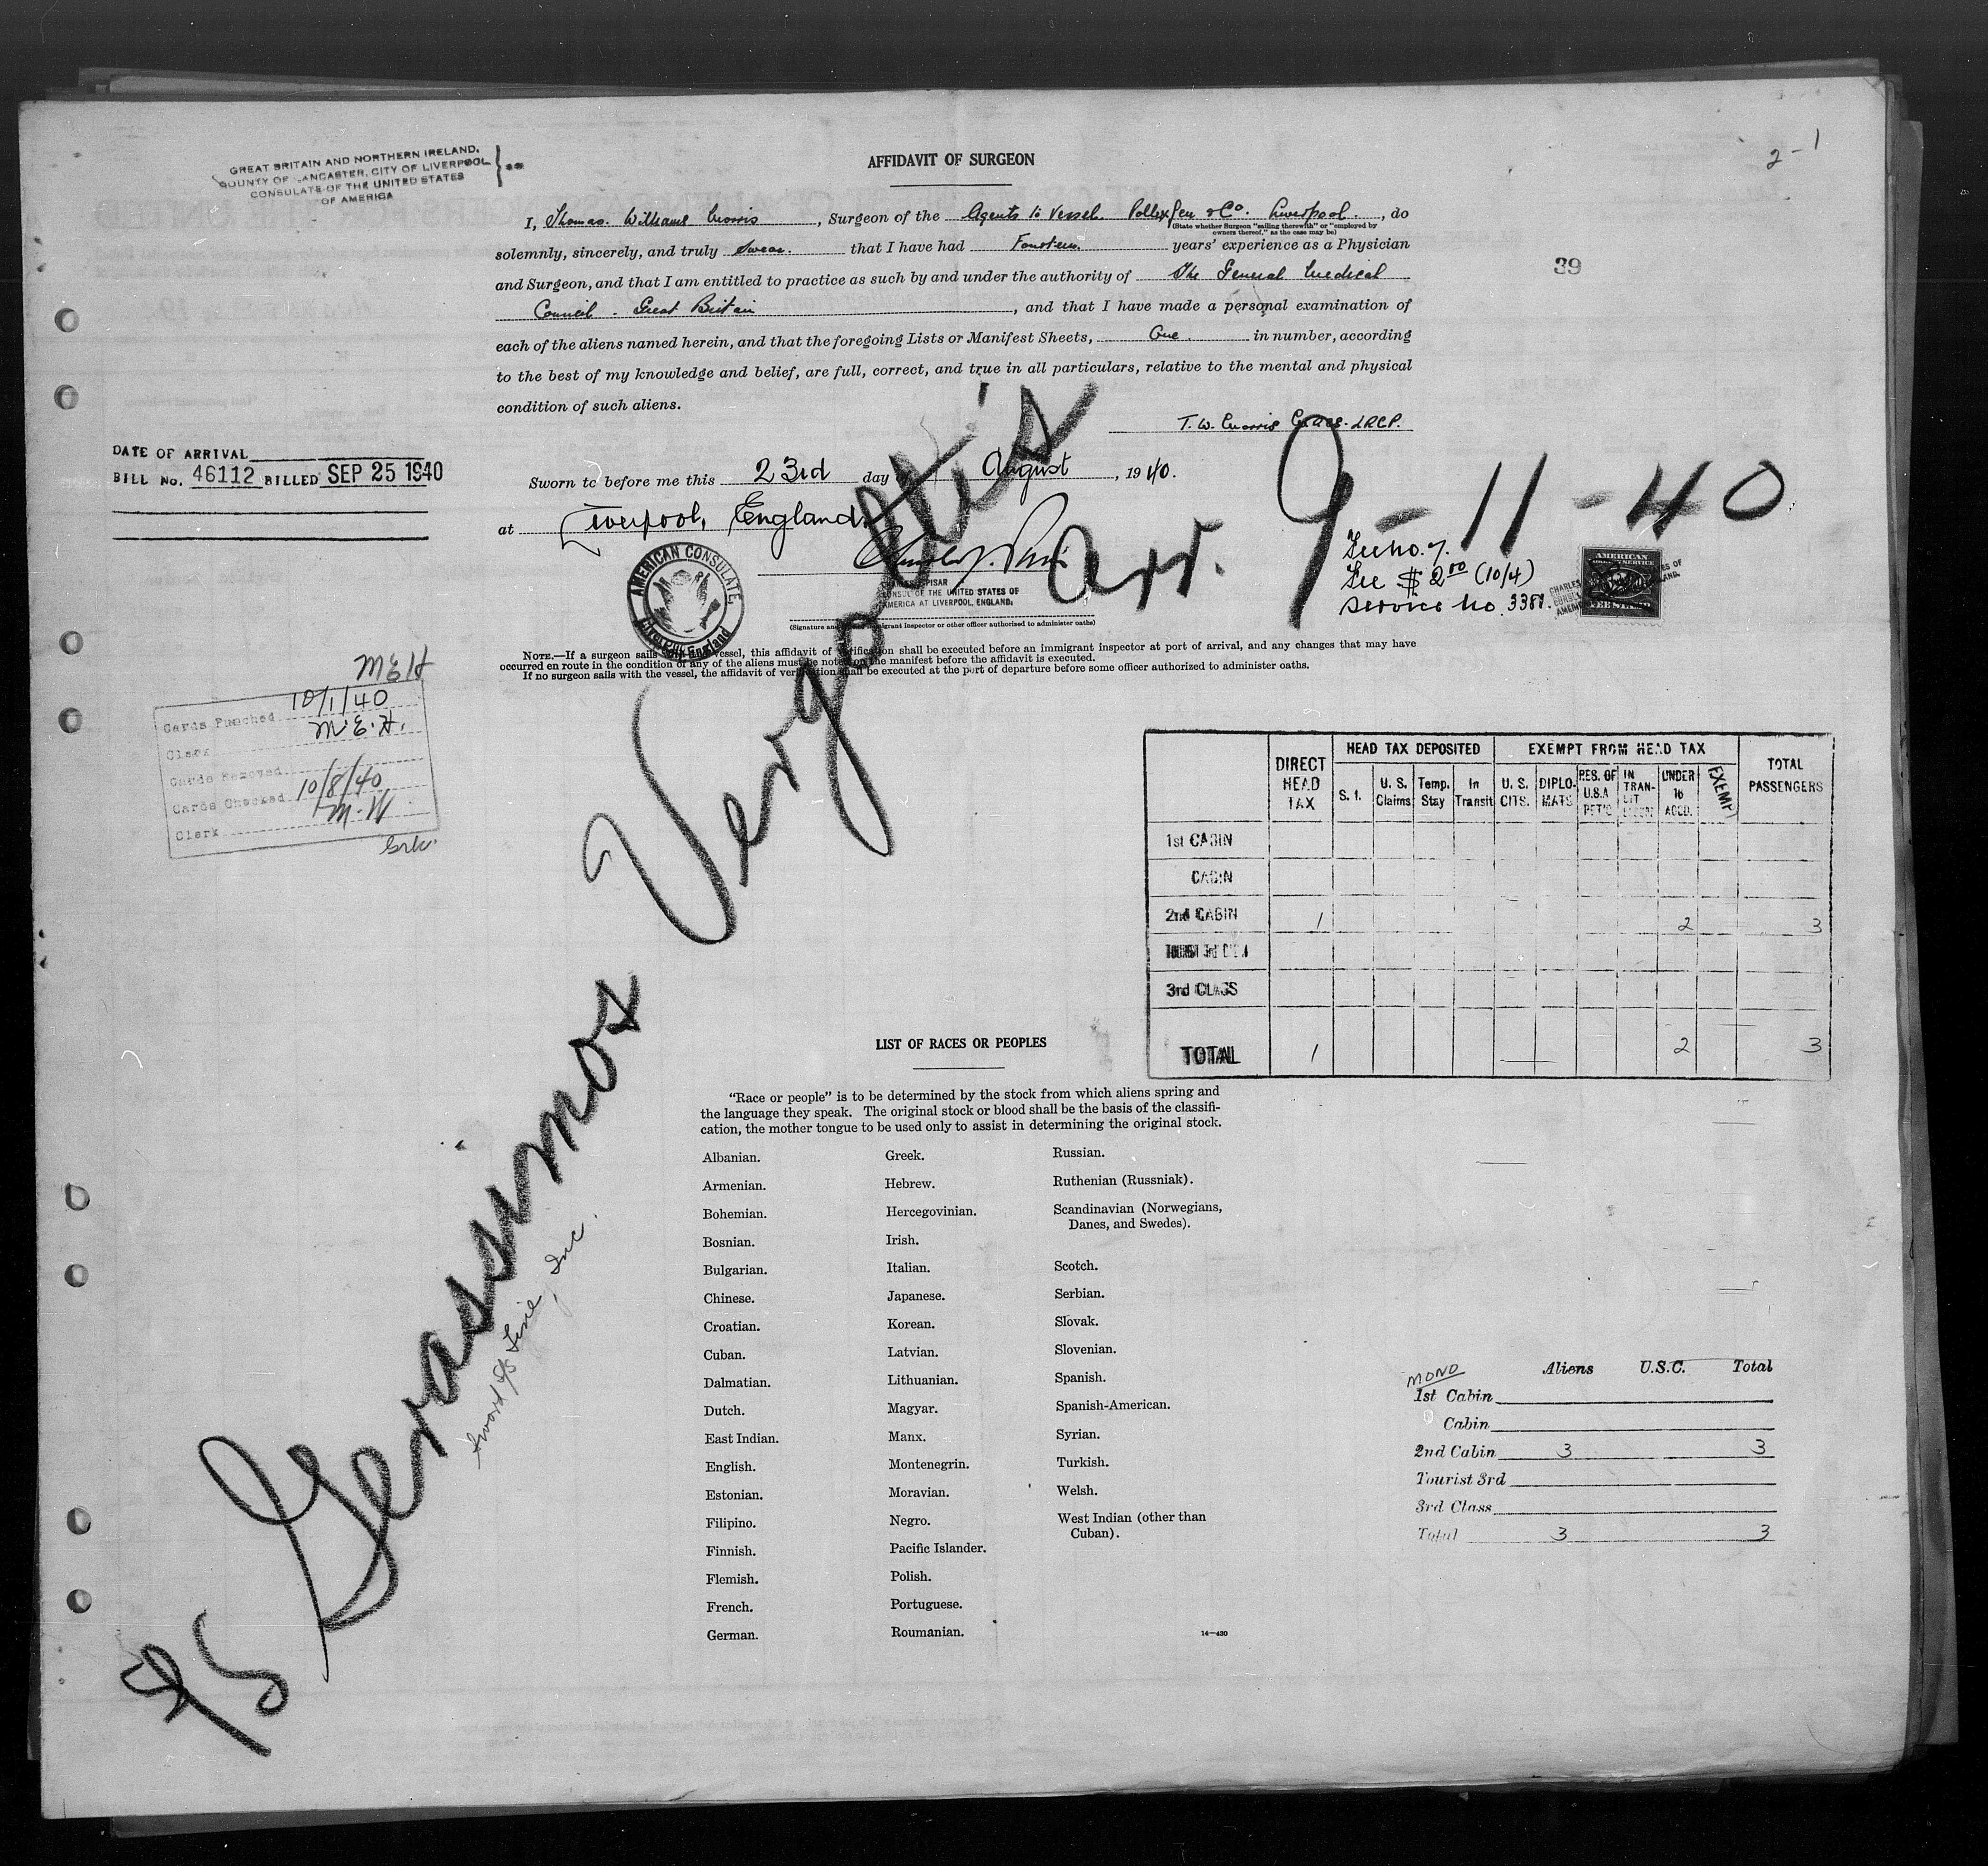 2-1
GREAT BRITAIN AND NORTHERN IRELAND,
COUNTY OF LANCASTER, CITY OF LIVERPOOL
CONSULATE OF THE UNITED STATES
OF AMERICA
AFFIDAVIT OF SURGEON
39
I, Thomas. Williams Morris, Surgeon of the Agents to Vessel. & Co. Liverpool., do
(State whether Surgeon "sailing therewith" or "employed by
owners thereof," as the case may be)
solemnly, sincerely, and truly swear. that I have had Fourteen years' experience as a Physician
and Surgeon, and that I am entitled to practice as such by and under the authority of The General Medical
Council. Great Britain, and that I have made a personal examination of
each of the aliens named herein, and that the foregoing Lists or Manifest Sheets, One. in number, according
to the best of my knowledge and belief, are full, correct, and true in all particulars, relative to the mental and physical
condition of such aliens.
T. W. Morris LRCP.
DATE OF ARRIVAL
BILL No. 46112 BILLED SEP 25 1940
Sworn to before me this 23rd day of August, 1940.
at Liverpool, England.
Arr. 9-11-40
AMERICAN CONSULATE.
Liverpool, England
CHARLES PISAR
CONSUL OF THE UNITED STATES OF
AMERICA AT LIVERPOOL, ENGLAND.
(Signature and immigrant inspector or other officer authorized to administer oaths)
Fee $2.00 (10/4)
Service No. 3388.
AMERICAN
FEE STAMP
NOTE.—If a surgeon sails with the vessel, this affidavit of verification shall be executed before an immigrant inspector at port of arrival, and any changes that may have
occurred en route in the condition of any of the aliens must be noted on the manifest before the affidavit is executed.
If no surgeon sails with the vessel, the affidavit of verification shall be executed at the port of departure before some officer authorized to administer oaths.
MEH
Cards Punched 10/1/40
Clerk M.E.H.
Cards Removed
Cards Checked 10/8/40
Clerk M.W.
SS Gerassimos Vergottis
Line, Inc.
DIRECT HEAD TAX
HEAD TAX DEPOSITED
EXEMPT FROM HEAD TAX
TOTAL PASSENGERS
S. I. U. S. Claims Temp. Stay In Transit U. S. CITS. DIPLO-MATS RES. OF U.S.A UNDER 16 ACCD. EXEMP
1st CABIN
CABIN
2nd CABIN 1 2 3
TOURIST 3rd
3rd CLASS
TOTAL 1 2 3
LIST OF RACES OR PEOPLES
"Race or people" is to be determined by the stock from which aliens spring and
the language they speak. The original stock or blood shall be the basis of the classifi-
cation, the mother tongue to be used only to assist in determining the original stock.
Albanian.
Armenian.
Bohemian.
Bosnian.
Bulgarian.
Chinese.
Croatian.
Cuban.
Dalmatian.
Dutch.
East Indian.
English.
Estonian.
Filipino.
Finnish.
Flemish.
French.
German.
Greek.
Hebrew.
Hercegovinian.
Irish.
Italian.
Japanese.
Korean.
Latvian.
Lithuanian.
Magyar.
Manx.
Montenegrin.
Moravian.
Negro.
Pacific Islander.
Polish.
Portuguese.
Roumanian.
Russian.
Ruthenian (Russniak).
Scandinavian (Norwegians,
Danes, and Swedes).
Scotch.
Serbian.
Slovak.
Slovenian.
Spanish.
Spanish-American.
Syrian.
Turkish.
Welsh.
West Indian (other than
Cuban).
14—430
MOND Aliens U.S.C. Total
1st Cabin
Cabin
2nd Cabin 3 3
Tourist 3rd
3rd Class
Total 3 3